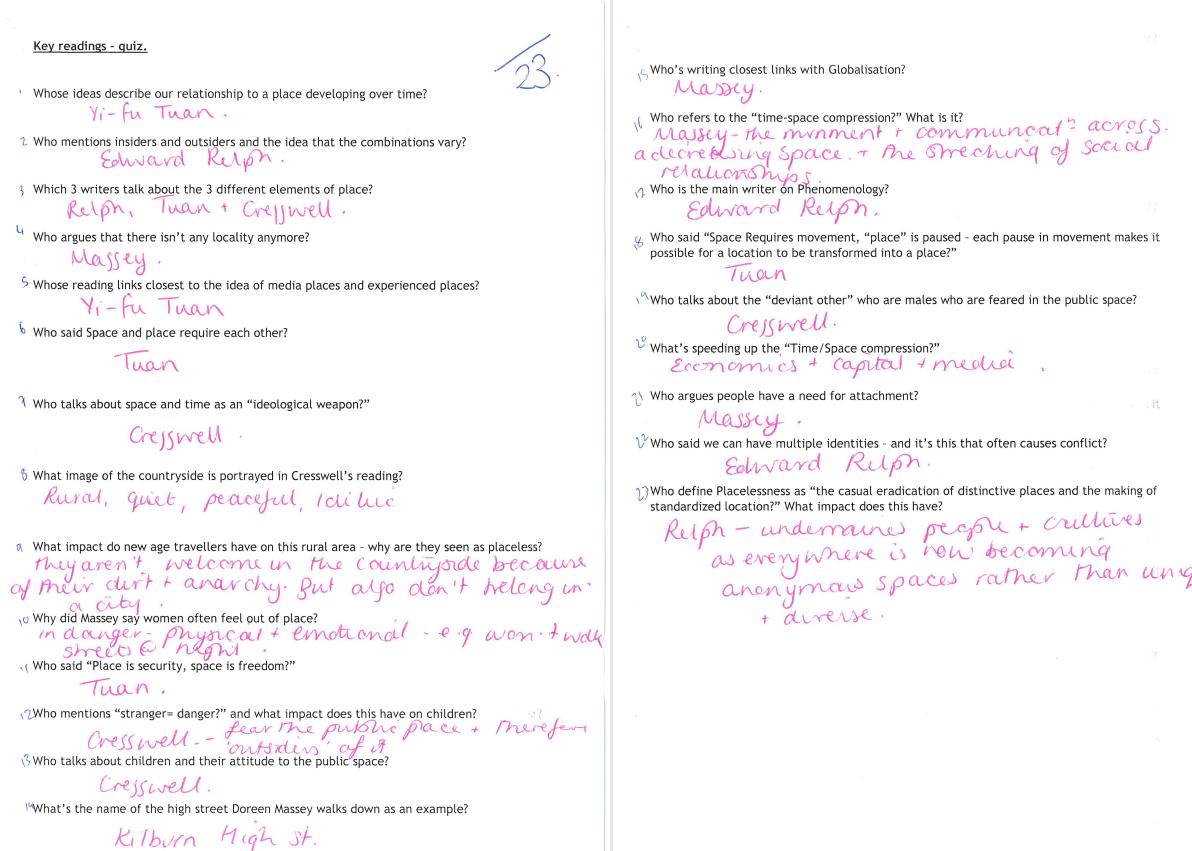 Key readings - quiz.
/23.
1 Whose ideas describe our relationship to a place developing over time?
Yi-Fu Tuan.
2 Who mentions insiders and outsiders and the idea that the combinations vary?
Edward Relph.
3 Which 3 writers talk about the 3 different elements of place?
Relph, Tuan + Cresswell.
4 Who argues that there isn't any locality anymore?
Massey.
5 Whose reading links closest to the idea of media places and experienced places?
Yi-Fu Tuan
6 Who said Space and place require each other?
Tuan
7 Who talks about space and time as an “ideological weapon?”
Cresswell.
8 What image of the countryside is portrayed in Cresswell's reading?
Rural, quiet, peaceful, idilic
9 What impact do new age travellers have on this rural area - why are they seen as placeless?
they aren't welcome in the countryside because
of their dirt + anarchy. But also don't belong in
a city.
10 Why did Massey say women often feel out of place?
in danger - physical + emotional - e.g won't walk
streets @ night.
11 Who said “Place is security, space is freedom?”
Tuan.
12 Who mentions “stranger= danger?” and what impact does this have on children?
Cresswell. - fear the public place + therefore
'outsiders' of it
13 Who talks about children and their attitude to the public space?
Cresswell.
14 What's the name of the high street Doreen Massey walks down as an example?
Kilburn High St.
15 Who's writing closest links with Globalisation?
Massey.
16 Who refers to the “time-space compression?” What is it?
Massey - the mvnment + communcatⁿ across
a decreasing space. + the streching of social
relationships.
17 Who is the main writer on Phenomenology?
Edward Relph.
18 Who said “Space Requires movement, “place” is paused - each pause in movement makes it
possible for a location to be transformed into a place?”
Tuan
19 Who talks about the “deviant other” who are males who are feared in the public space?
Cresswell.
20 What's speeding up the “Time/Space compression?”
Economics + capital + media.
21 Who argues people have a need for attachment?
Massey.
22 Who said we can have multiple identities - and it's this that often causes conflict?
Edward Relph.
23 Who define Placelessness as “the casual eradication of distinctive places and the making of
standardized location?” What impact does this have?
Relph - undermaines people + cultures
as everywhere is now becoming
anonymous spaces rather than uniq
+ diverse.